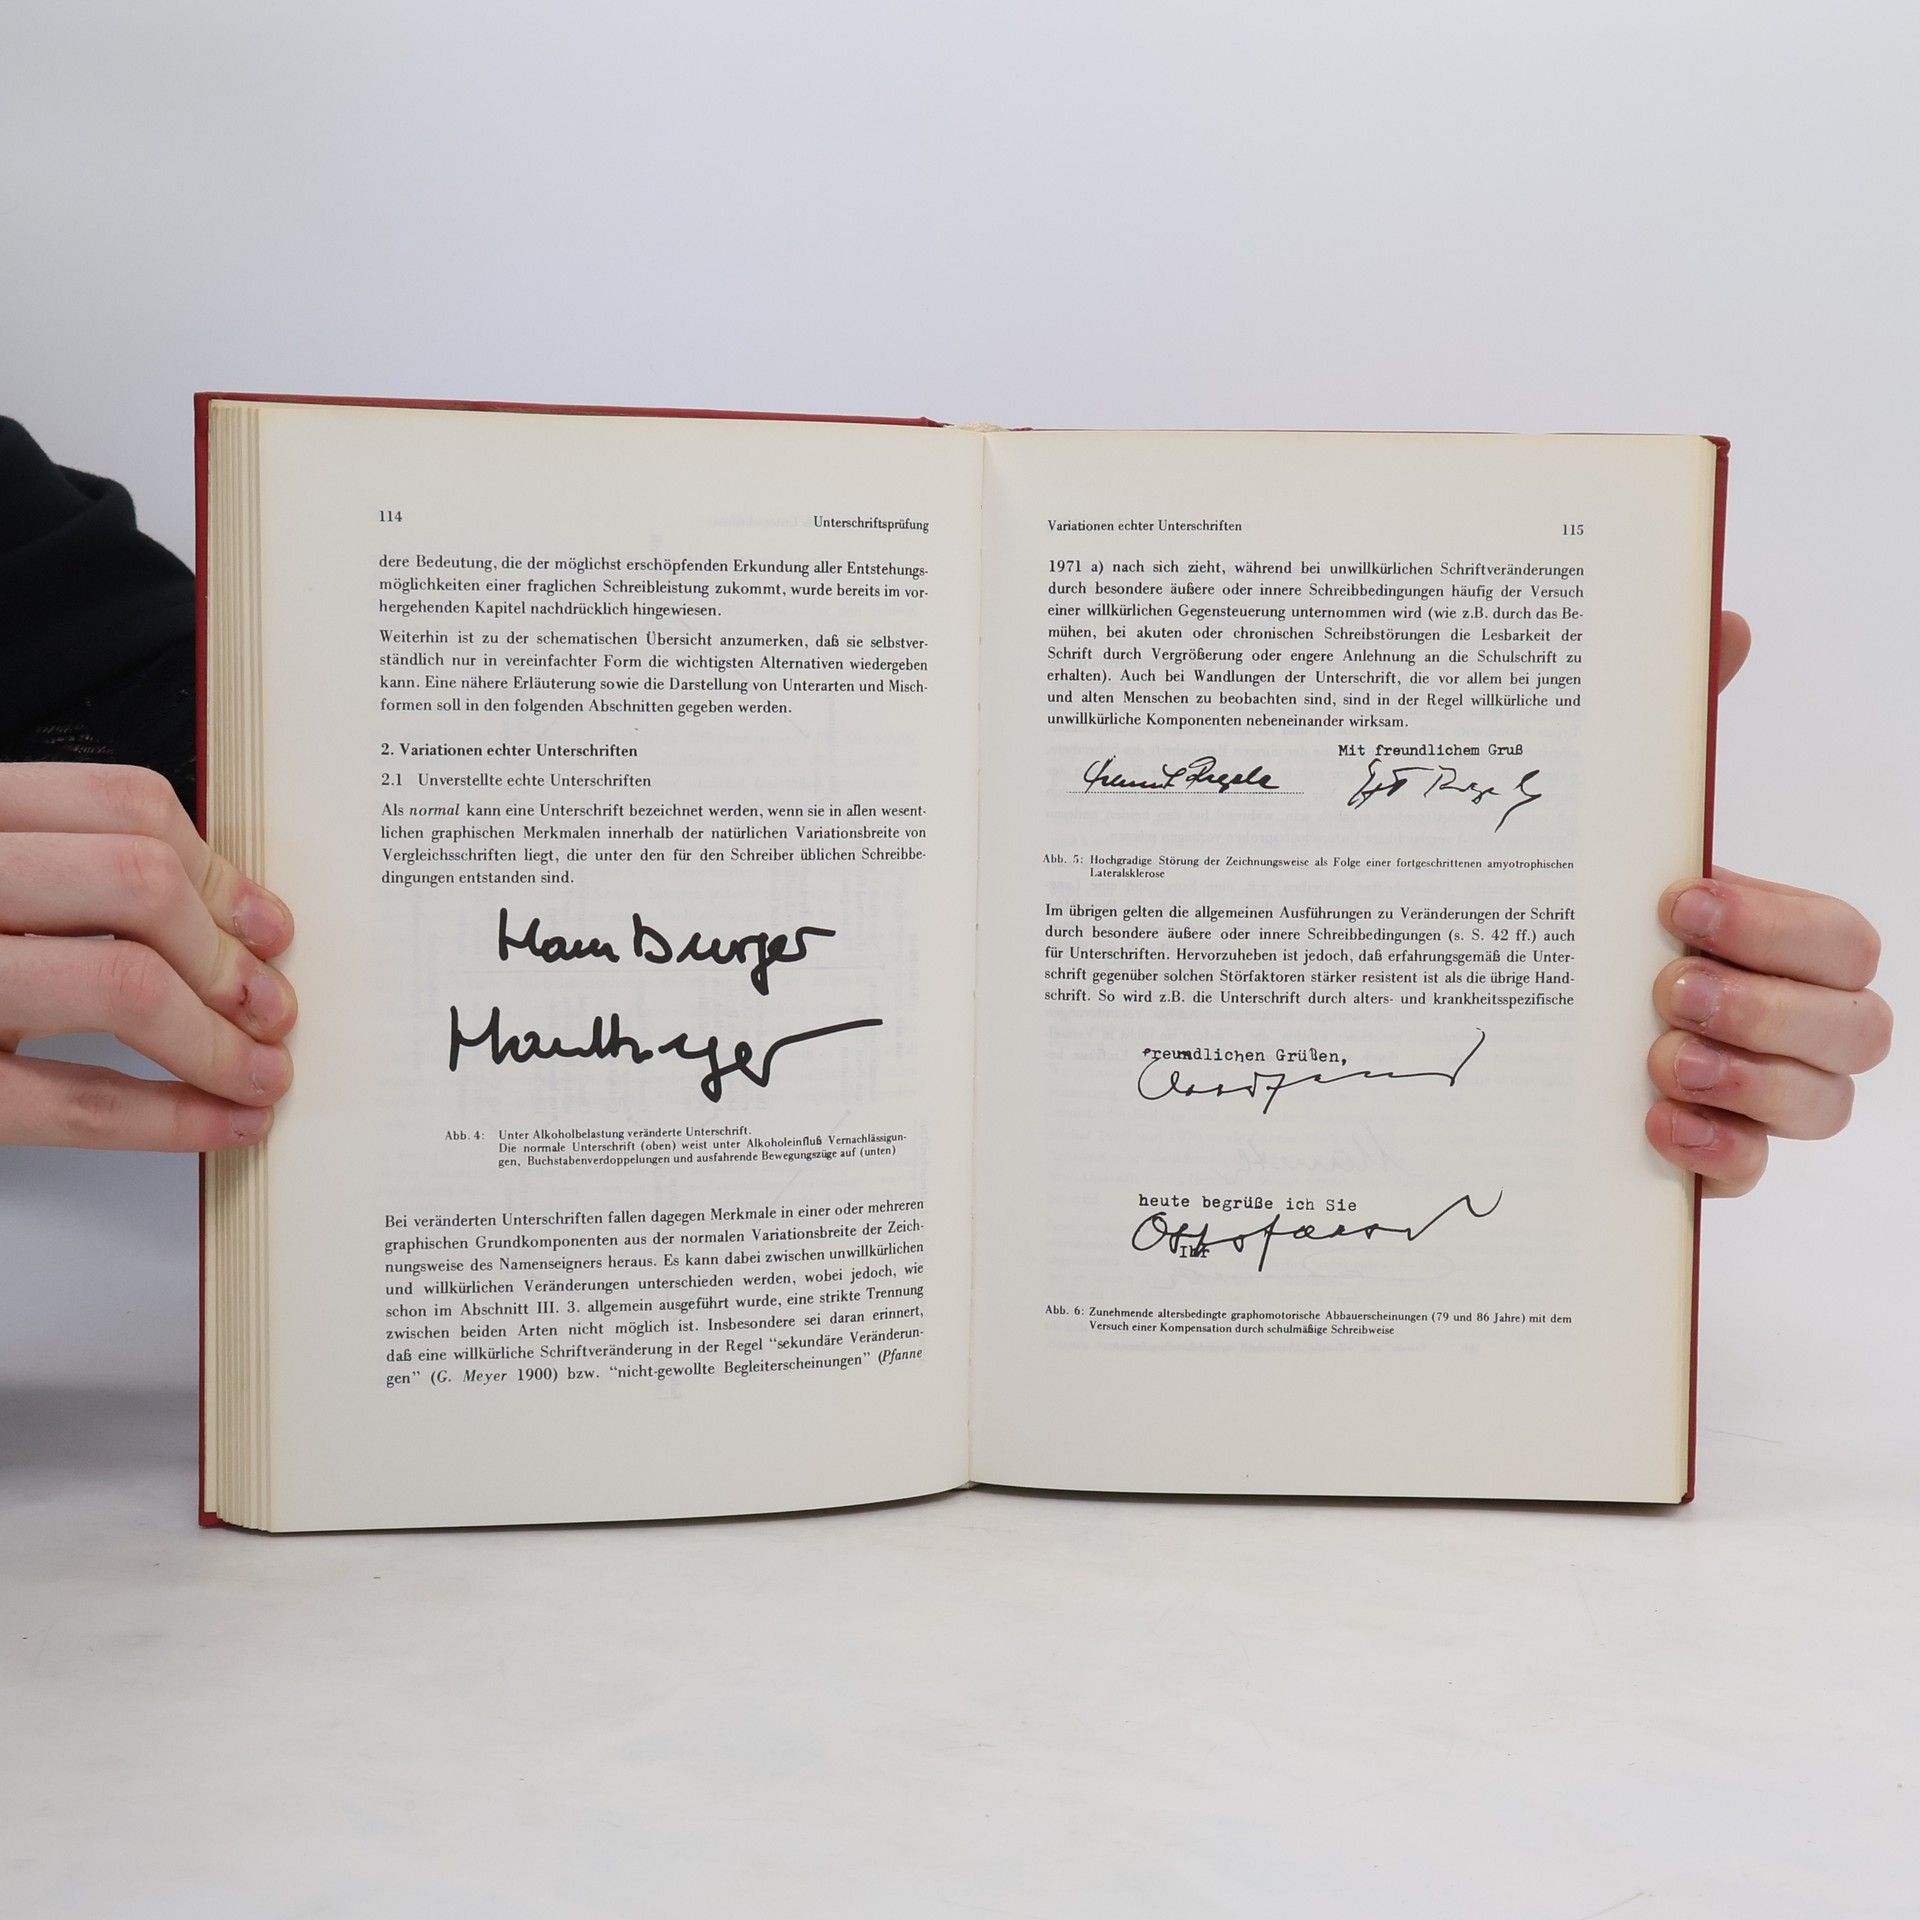 114
Unterschriftsprüfung
dere Bedeutung, die der möglichst erschöpfenden Erkundung aller Entstehungs-
möglichkeiten einer fraglichen Schreibleistung zukommt, wurde bereits im vor-
hergehenden Kapitel nachdrücklich hingewiesen.
Weiterhin ist zu der schematischen Übersicht anzumerken, daß sie selbstver-
ständlich nur in vereinfachter Form die wichtigsten Alternativen wiedergeben
kann. Eine nähere Erläuterung sowie die Darstellung von Unterarten und Misch-
formen soll in den folgenden Abschnitten gegeben werden.
2. Variationen echter Unterschriften
2.1 Unverstellte echte Unterschriften
Als normal kann eine Unterschrift bezeichnet werden, wenn sie in allen wesent-
lichen graphischen Merkmalen innerhalb der natürlichen Variationsbreite von
Vergleichsschriften liegt, die unter den für den Schreiber üblichen Schreibbe-
dingungen entstanden sind.
Abb. 4: Unter Alkoholbelastung veränderte Unterschrift.
Die normale Unterschrift (oben) weist unter Alkoholeinfluß Vernachlässigun-
gen, Buchstabenverdoppelungen und ausfahrende Bewegungszüge auf (unten)
Bei veränderten Unterschriften fallen dagegen Merkmale in einer oder mehreren
graphischen Grundkomponenten aus der normalen Variationsbreite der Zeich-
nungsweise des Namenseigners heraus. Es kann dabei zwischen unwillkürlichen
und willkürlichen Veränderungen unterschieden werden, wobei jedoch, wie
schon im Abschnitt III. 3. allgemein ausgeführt wurde, eine strikte Trennung
zwischen beiden Arten nicht möglich ist. Insbesondere sei daran erinnert,
daß eine willkürliche Schriftveränderung in der Regel "sekundäre Veränderun-
gen" (G. Meyer 1900) bzw. "nicht-gewollte Begleiterscheinungen" (Pfanne
Variationen echter Unterschriften
115
1971 a) nach sich zieht, während bei unwillkürlichen Schriftveränderungen
durch besondere äußere oder innere Schreibbedingungen häufig der Versuch
einer willkürlichen Gegensteuerung unternommen wird (wie z.B. durch das Be-
mühen, bei akuten oder chronischen Schreibstörungen die Lesbarkeit der
Schrift durch Vergrößerung oder engere Anlehnung an die Schulschrift zu
erhalten). Auch bei Wandlungen der Unterschrift, die vor allem bei jungen
und alten Menschen zu beobachten sind, sind in der Regel willkürliche und
unwillkürliche Komponenten nebeneinander wirksam.
Mit freundlichem Gruß
Abb. 5: Hochgradige Störung der Zeichnungsweise als Folge einer fortgeschrittenen amyotrophischen
Lateralsklerose
Im übrigen gelten die allgemeinen Ausführungen zu Veränderungen der Schrift
durch besondere äußere oder innere Schreibbedingungen (s. S. 42 ff.) auch
für Unterschriften. Hervorzuheben ist jedoch, daß erfahrungsgemäß die Unter-
schrift gegenüber solchen Störfaktoren stärker resistent ist als die übrige Hand-
schrift. So wird z.B. die Unterschrift durch alters- und krankheitsspezifische
freundlichen Grüßen,
heute begrüße ich Sie
Ihr
Abb. 6: Zunehmende altersbedingte graphomotorische Abbauerscheinungen (79 und 86 Jahre) mit dem
Versuch einer Kompensation durch schulmäßige Schreibweise